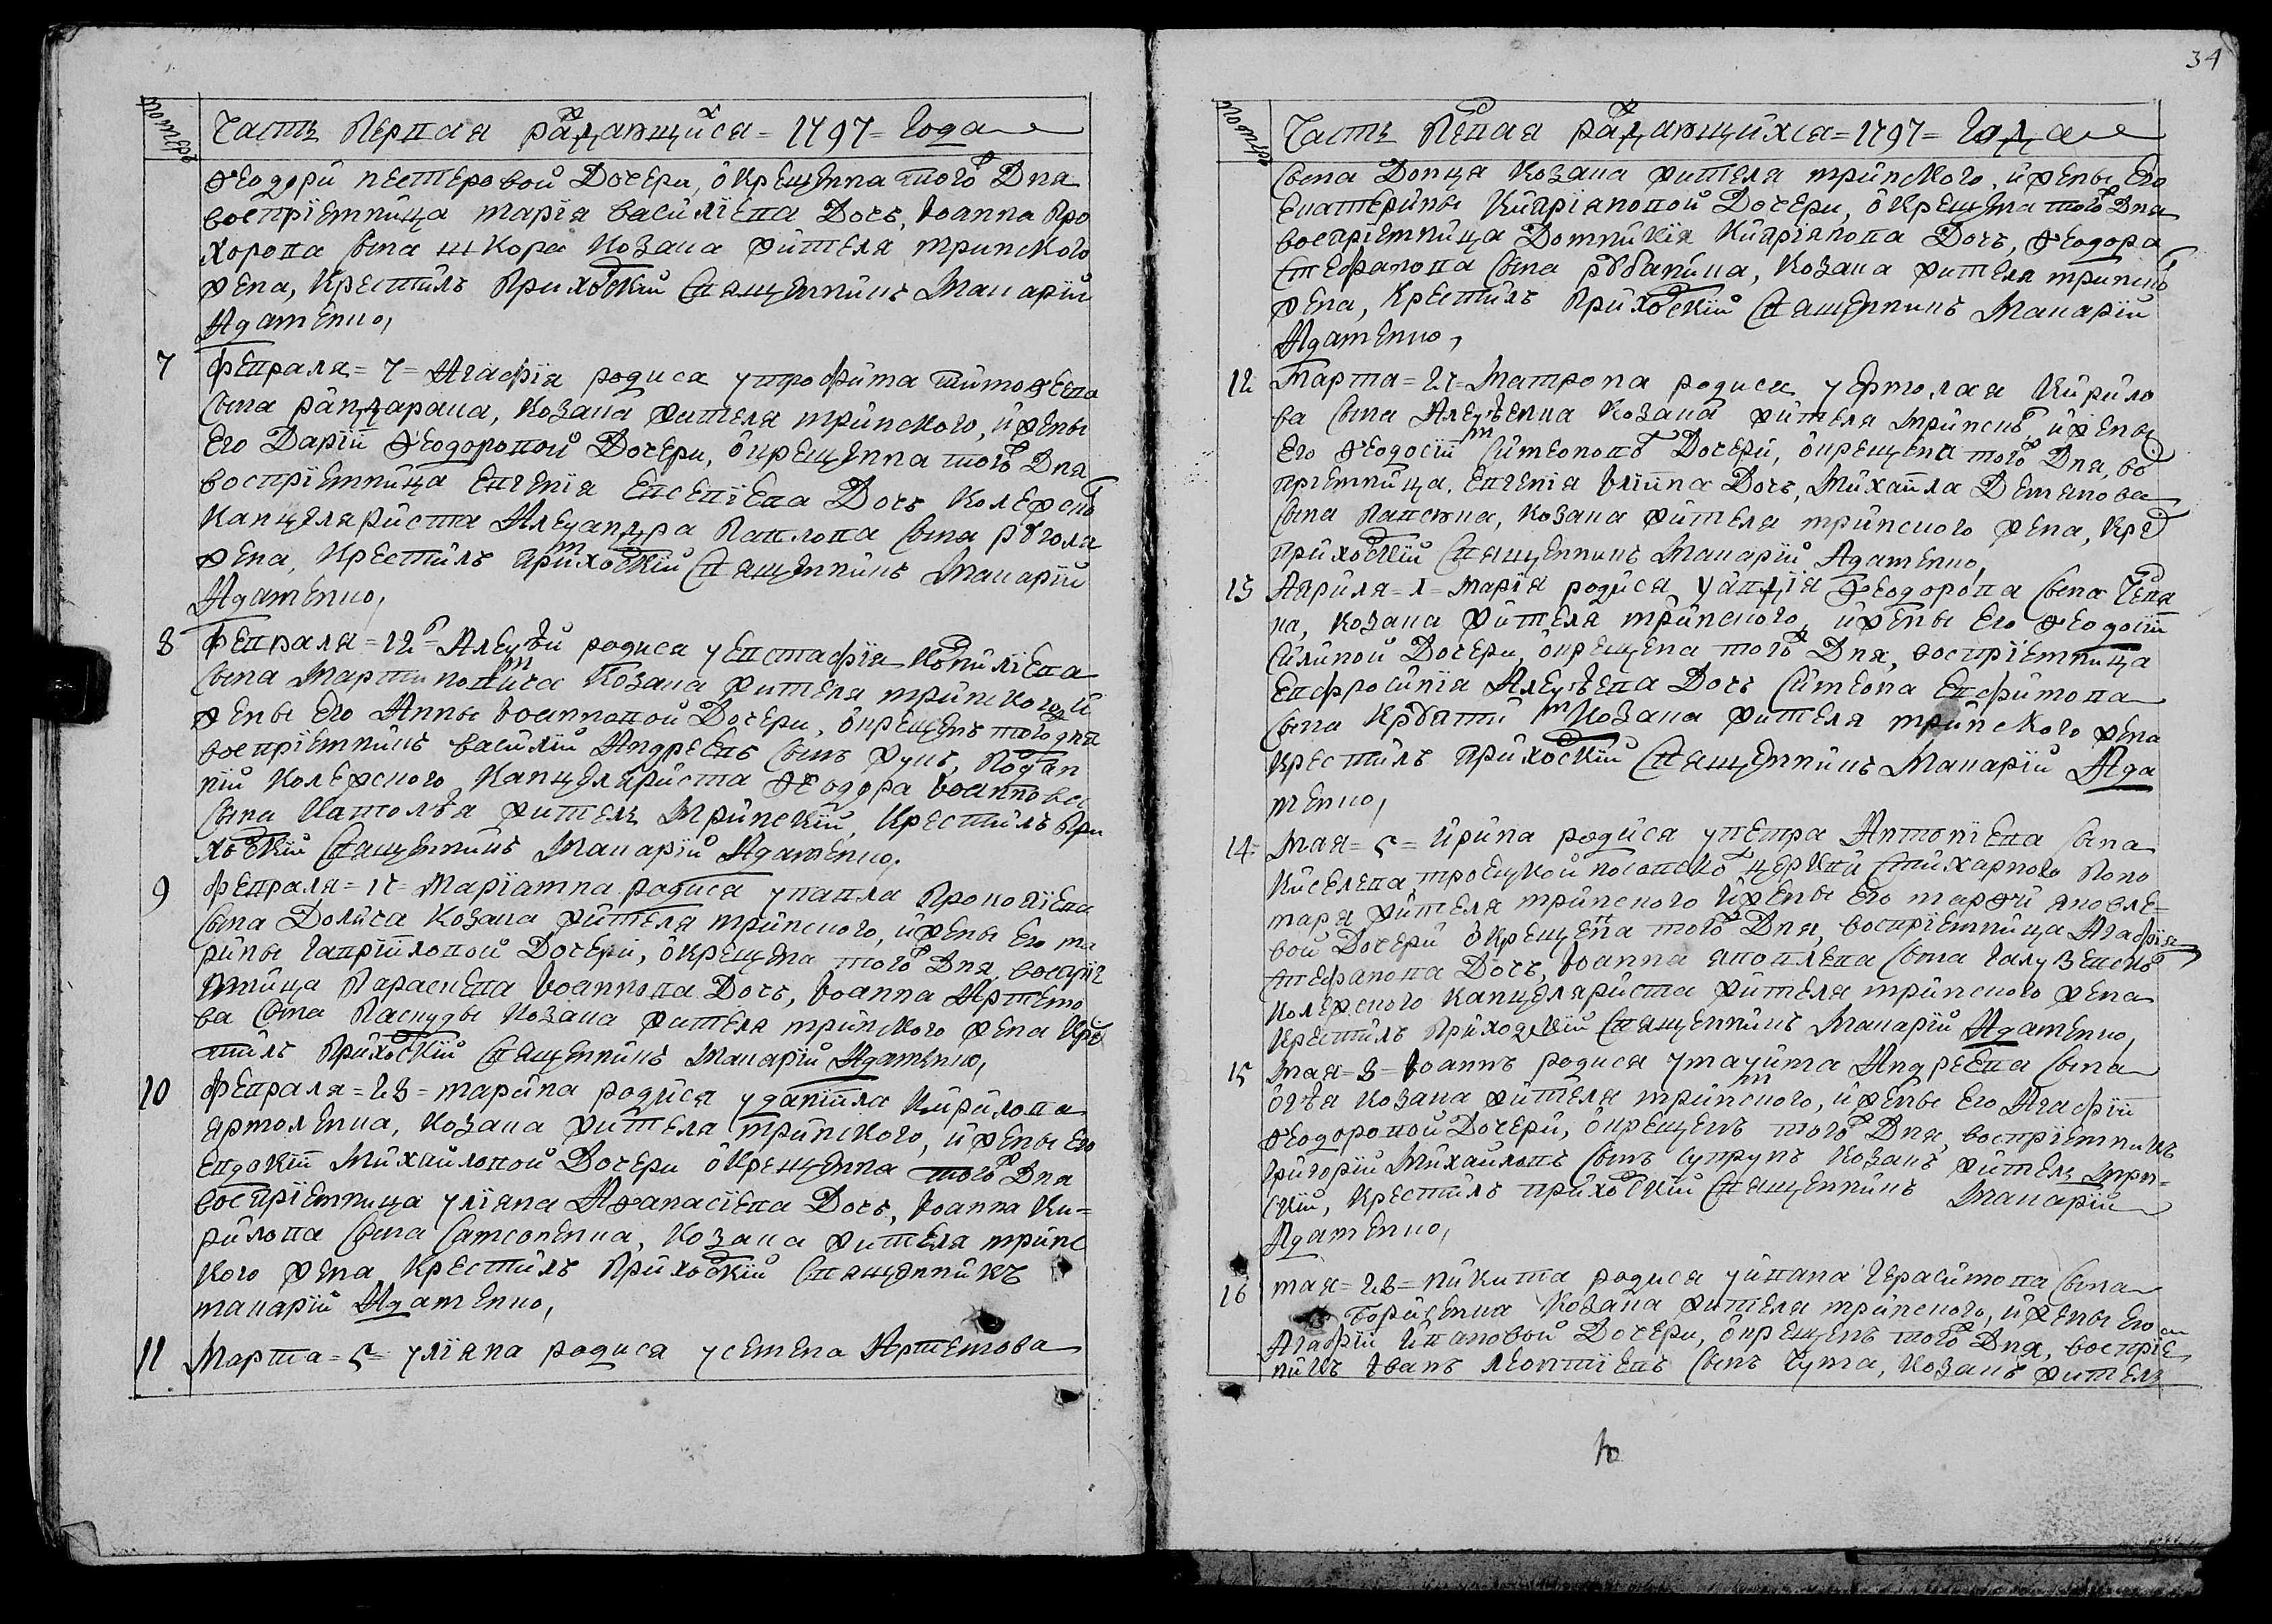 номеръ
Часть Первая раждающихся = 1797 = Года
Ѳеодори Нестеровой Дочери, окрещенна того Дня
воспрїемница марїя василїева Дочь, Іоанна Про
хорова сына шкора Козака жителя мринского
жена, Крестилъ Приходскїй Священникъ Макарїй
Адаменко,
7 февраля = 7 = Агафїя родиса у трофима тимоѲеева
сына рандарака, Козака жителя мринского, и жены
Его Дарїи Ѳеодоровой Дочери, окрещенна того Дня
воспрїемница Евгенїя Евсевїева Дочь Колежско
Канцеляриста Алеѯандра Павлова сына роголя
жена, Крестилъ приходскїй Священникъ Макарїй
Адаменко,
8 февраля = 12 = Алеѯѣй родися у евстафїя
сына Мартиновича Козака жителя мринского, и
жены Его Анны Іоанновой Дочери, окрещенъ того дня
воспрїемникъ василїй Андреевъ сынъ жукъ, Поддан
нїй Колежского Канцеляриста Ѳеодора Іоаннова
сына житель Мринскїй, Крестилъ При
ходскїй Священникъ Макарїй Адаменко,
9 февраля = 17 = Марїамна родися у павла Прокопїева
сына Долича Козака жителя мринского, и жены Его ма
рины гаврїиловой Дочери, окрещена того Дня, воспрїе
мница Параскева Іоаннова Дочь, Іоанна Артемо
ва сына Паскуды Козака жителя мринского жена Кре
тилъ Приходскїй Священникъ Макарїй Адаменко,
10 февраля = 28 = марина родися у данїила Кирилова
ярмоленка, Козака жителя мринского, и жены Его
Евдокїи Михайловой Дочери окрещенна того Дня
воспрїемница улїяна Аѳанасїева Дочь, Іоанна Ки=
рилова сына Самсоненка, Козака жителя мринс
кого жена Крестилъ Приходскїй Священникъ
макарїй Адаменко,
11 Марта = 5 = улїяна родися у семена Артемова
34
номеръ
Часть Первая раждающихся = 1797 = Года
сына Донца Козака жителя мринского, и жены Его
Екатерины Кипрїяновой Дочери, окрещена того Дня
воспрїемница Домникїя Кипрїянова Дочь, Ѳеодора
Стефанова сына рубаника, Козака жителя мринско
жена, Крестилъ Приходскїй Священникъ Макарїй
Адаменко,
12 Марта = 27 = Матрона родися у Ермолая Кирило
ва сына Алеѯѣенка Козака жителя мринско и жены
Его Ѳеодосїи Симеоново Дочери, окрещена того Дня, во
прїемница, Евгенїя Дочь, Михаила Демянова
сына Козака жителя мринского жена, Кре
приходскїй Священникъ Макарїй Адаменко,
13 Априля = 1 = марїя родися у Ѳеодорова сына
ка, Козака жителя мринского, и жены Его Ѳеодосїи
Силиной Дочери, окрещена того Дня, воспрїемница
Евфросинїя Алеѯѣева Дочь Симеона Евфимова
сына Козака жителя мринского жена
Крестилъ приходскїй Священникъ Макарїй Ада
менко,
14 = Мая = 5 = Ирина родися у петра Антонїева сына
Киселева троецкой носовско церкви стихарного Поно
маря жителя мринского и жены Его марѳи яковле=
вой Дочери окрещена того Дня, воспрїемница Агафїя
стефанова Дочь, Іоанна яковлева сына
Колежского Канцеляриста жителя мринского жена
Крестилъ Приходскїй Священникъ Макарїй Адаменко,
15 Мая = 8 = Іоаннъ родися у маѯима Андреева сына
Козака жителя мринского, и жены Его Агафїи
Ѳеодоровой Дочери, окрещенъ того Дня, воспрїемникъ
григорїй Михайловъ сынъ супрунъ Козакъ житель мрин=
скїй, Крестилъ приходскїй Священникъ Макарїй
Адаменко,
16 мая = 28 = никита родися у ивана Герасимова сына
Борисенка Козака жителя мринского, и жены Его
Агафїи ивановой Дочери, окрещенъ того Дня, воспрїем
никъ Іванъ леонтїевъ сынъ чума, Козакъ житель